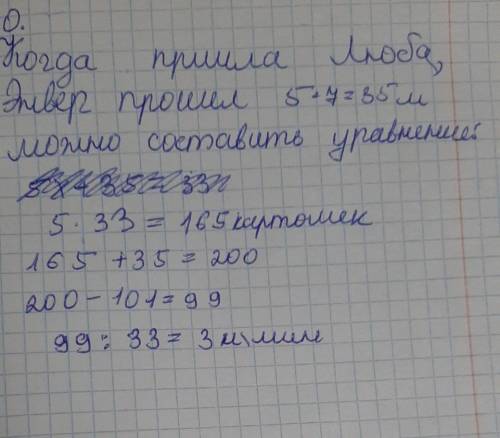 0.
Когда пришла Люба,
Энвер прошел 5·7=35м
можно составить уравнение:
5·33=165картошек
165+35=200
200-101=99
99:33=3м\мин